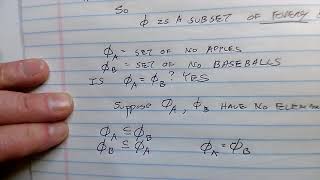 So
φ IS A SUBSET OF EVERY
φ_A = SET OF NO APPLES
φ_B = SET OF NO BASEBALLS
IS φ_A = φ_B? YES
Suppose φ_A, φ_B HAVE NO ELEMEN
φ_A ⊆ φ_B
φ_B ⊆ φ_A φ_A = φ_B